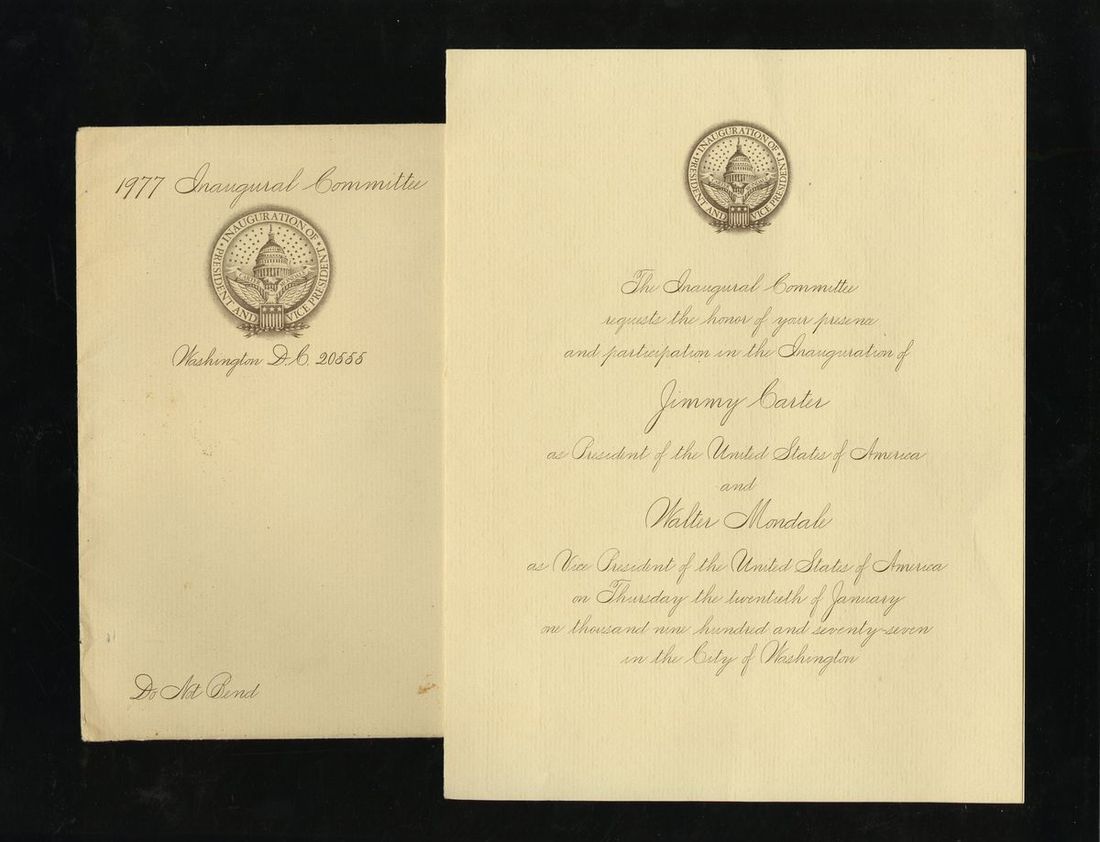 1977 Inaugural Committee
INAUGURATION OF PRESIDENT AND VICE PRESIDENT
Washington D.C. 20555
Do Not Bend
INAUGURATION OF PRESIDENT AND VICE PRESIDENT
The Inaugural Committee
requests the honor of your presence
and participation in the Inauguration of
Jimmy Carter
as President of the United States of America
and
Walter Mondale
as Vice President of the United States of America
on Thursday the twentieth of January
one thousand nine hundred and seventy-seven
in the City of Washington